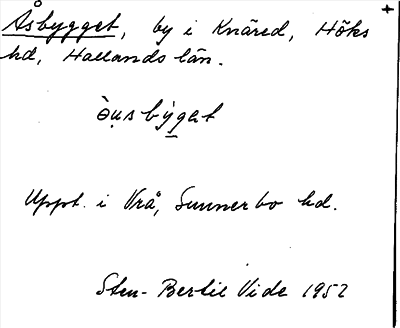 Åsbygget, by i Knäred, Höks
hd, Hallands län.
Uppt. i Vrå, Sunnerbo hd.
Sten-Bertil Vide 1952